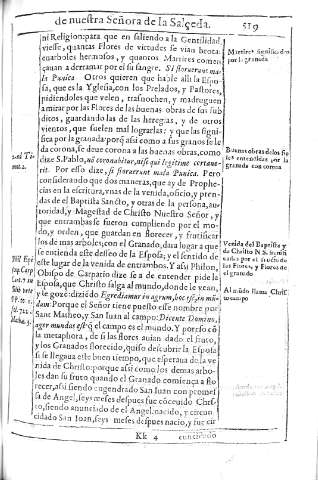 de nuestra Señora de la Salçeda. 519
ni Religion: para que en saliendo a la Gentilidad
viesse, quantas Flores de virtudes se vian brota
en arboles hermosos, y quantos Martires comen
çauan a derramar por el su sangre. Si floruerunt ma
la Punica. Otros quieren que hable alli la Espo
sa, que es la Yglesia, con los Prelados, y Pastores,
pidiendoles que velen, trasnochen, y madruguen
a mirar por las Flores de las buenas obras de sus sub
ditos, guardando las de las heregias, y de otros
vientos, que suelen mal lograrlas: y que las signi
fica por la granada: porque assi como a sus granos se le da
corona, se de corona a las buenas obras, como
dize S. Pablo, non coronabitur, nisi qui legitime certaue
rit. Por esso dize, si floruerunt mala Punica. Pero
considerando que dos maneras, que ay de Prophe
cias en la escritura, vnas de la venida, oficio, y pren
das de el Baptista Sancto, y otras de la persona, au
toridad, y Magestad de Christo Nuestro Señor, y
que entrambas se fueron cumpliendo por el mo-
do, y orden, que guardan en florecer, y fructificar
los de mas arboles; con el Granado, dara lugar a que
se entienda este desseo de la Esposa; y el sentido de
este lugar de la venida de entrambos. Y assi Philon,
Obispo de Carpacio dize se a de entender pide la
Esposa, que Christo salga al mundo, donde le vean,
y le goze: diziẽdo Egrediamur in agrum, hoc est, in mũ-
dum: Porque el Señor tiene puesto esse nombre por
Sant Matheo, y San Iuan al campo: Docente Domino,
ager mundus est: que el campo es el mundo. Y por esso cõ
la metaphora, de si las flores auian dado el fruto,
y los Granados florecido, quiso descubrir la Esposa
si se llegaua este buen tiempo, que esperaua de la ve
nida de Christo: porque assi como los demas arbo-
les dan su fruto quando el Granado comiença a flo
recer, assi siendo engendrado San Iuan con promes
sa de Angel, seys meses despues fue cõcebido Chris-
to, siendo anunciado de el Angel. nacido, y circun
cidado San Iuan, seys meses despues nacio, y fue cir
Kk 4 cuncidado
Martires significados
por la granada
Buenas obras de los fie
les entendidas por la
granada con corona
Venida del Baptista y
de Christo N. S. signifi
cadas por el sentido de
las Flores, y Flores de
el granado
Al mũdo llama Chris
to campo